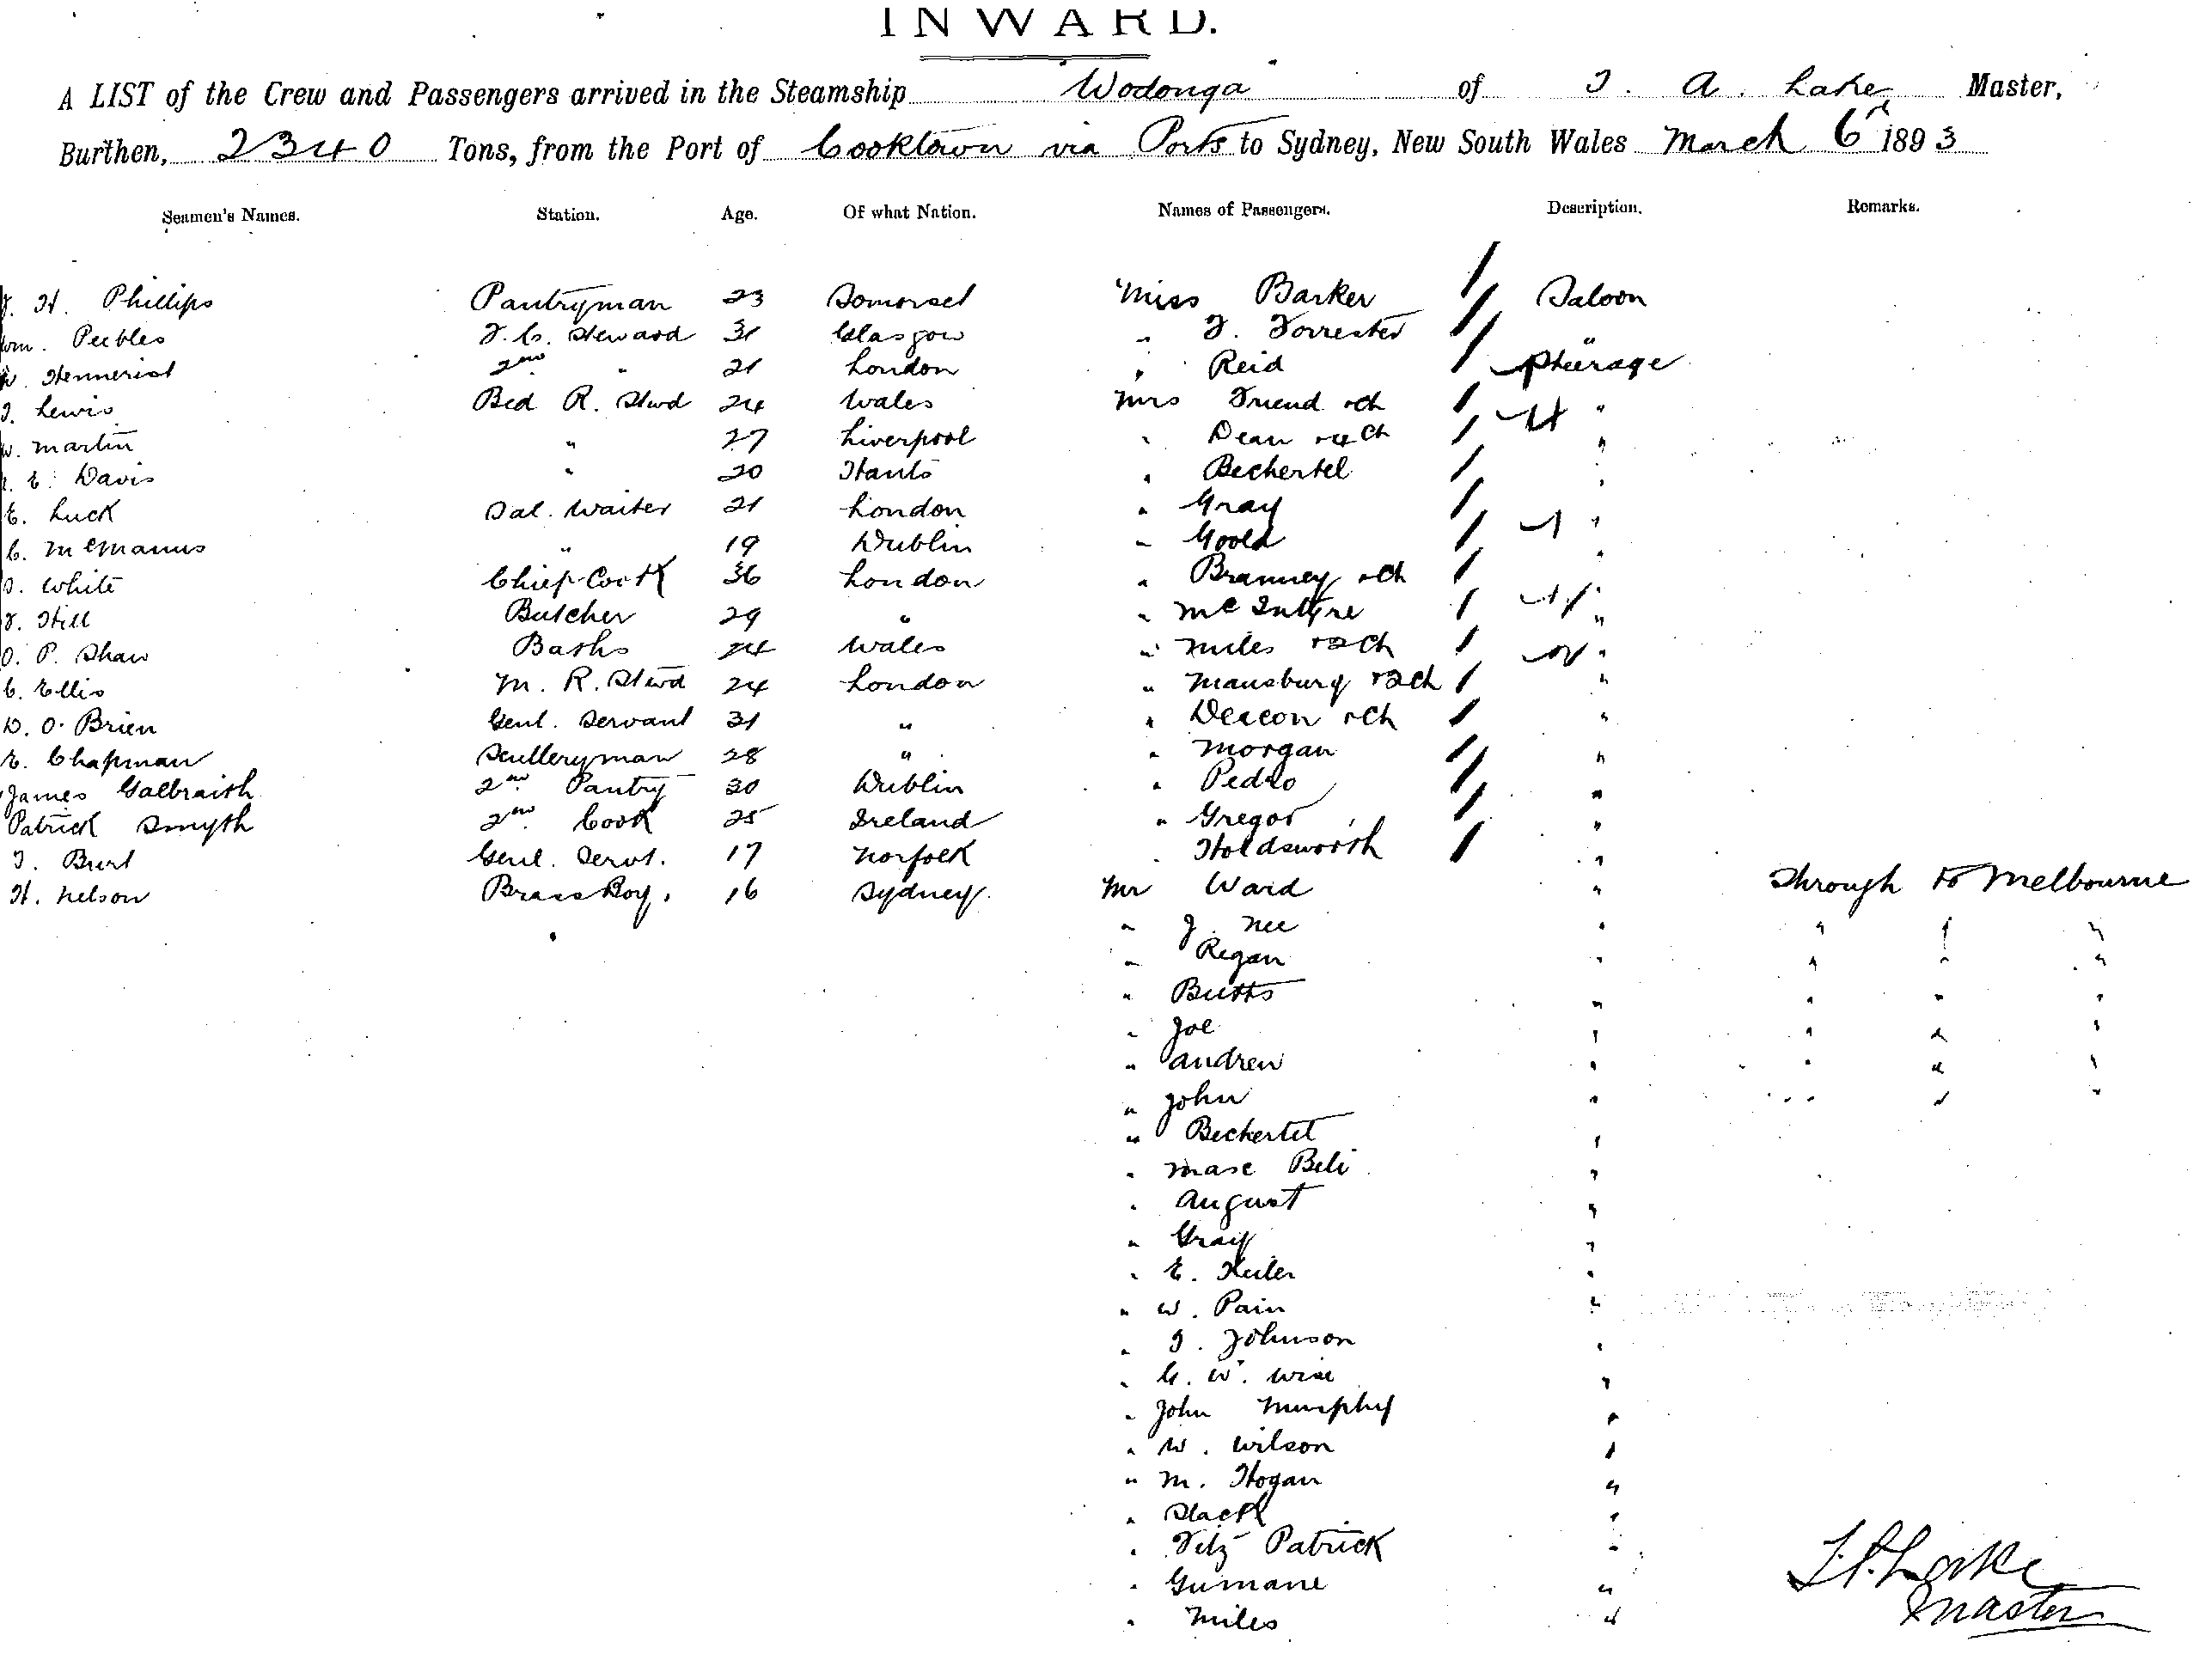 INWARD.
A LIST of the Crew and Passengers arrived in the Steamship Wodonga of J. A. Lake Master,
Burthen, 2340 Tons, from the Port of Cooktown via Ports to Sydney, New South Wales March 6th 1893
Seamen's Names. Station. Age. Of what Nation. Names of Passengers. Description. Remarks.
H. Phillips Pantryman 23 Somerset Miss Barker Saloon
Wm. Peebles F. C. Steward 31 Glasgow " F. Forrester "
2nd " 21 London " Reid Steerage
Lewis Bed R. Stwd 24 Wales Mrs Friend & ch "
W. Martin " 27 Liverpool " Dean & 4 ch "
E. Davis " 20 Hants " Bechertel "
E. Luck Sal. Waiter 21 London " Gray "
C. McManus " 19 Dublin " Goold "
White Chief Cook 36 London " Branney & ch "
Hill Butcher 29 " " McIntyre "
P. Shaw Baths 24 Wales " Miles & 2 ch "
C. Ellis M. R. Stwd 24 London " Mansburg & 2 ch "
D. O'Brien Genl. Servant 31 " " Deacon & ch "
E. Chapman Sculleryman 28 " " Morgan "
James Galbraith 2nd Pantry 30 Dublin " Pedro "
Patrick Smyth 2nd Cook 25 Ireland " Gregor "
Burt Genl. Servt. 17 Norfolk " Holdsworth "
H. Nelson Brass Boy. 16 Sydney. Mr Ward " Through to Melbourne
" J. Nee " " " "
" Regan " " " "
" Butts " " " "
" Joe " " " "
" Andrew " " " "
" John " " " "
" Bechertel "
" Mase Beli "
" August "
" Gray "
" E. Keiler "
" W. Pain "
" J. Johnson "
" G. W. Wise "
" John Murphy "
" W. Wilson "
" M. Hogan "
" Slack "
" Fitz Patrick "
" Gumane "
" Miles "
Lake
Master